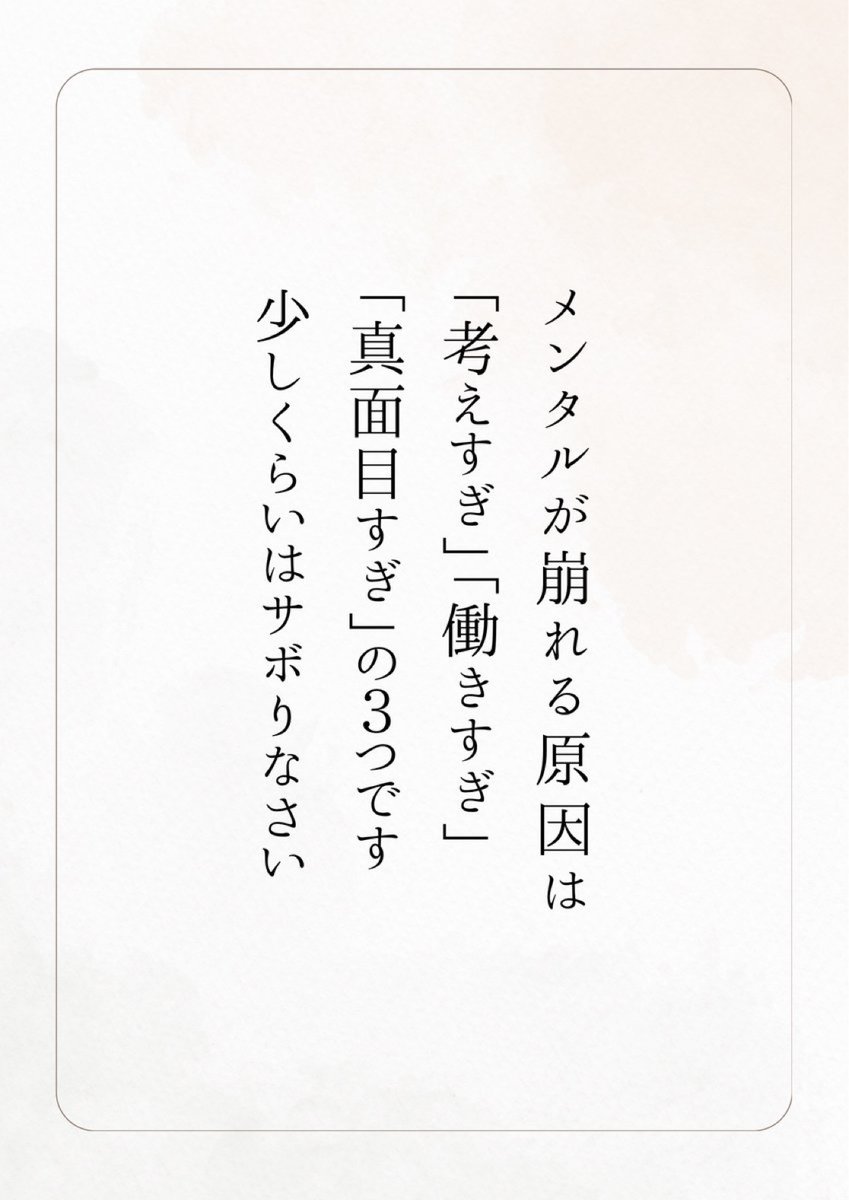 メンタルが崩れる原因は
「考えすぎ」「働きすぎ」
「真面目すぎ」の３つです
少しくらいはサボりなさい